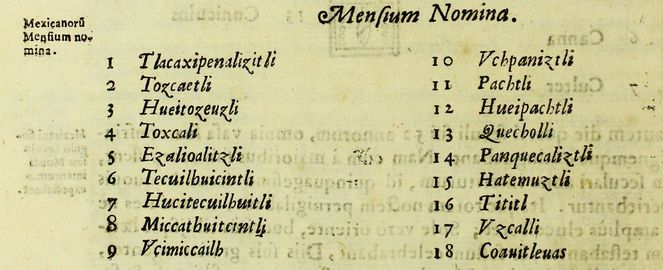 Menſium Nomina.
Mexicanorũ
Menſium no-
mina.
1 Tlacaxipenalizitli
2 Tozcaetli
3 Hueitozeuzli
4 Toxcali
5 Ezalioalitzli
6 Tecuilhuicintli
7 Hucitecuilhuitli
8 Miccathuitcintli
9 Vcimiccailh
10 Vchpaniztli
11 Pachtli
12 Hueipachtli
13 Quecholli
14 Panquecaliztli
15 Hatemuztli
16 Tititl
17 Vzcalli
18 Coauitleuas